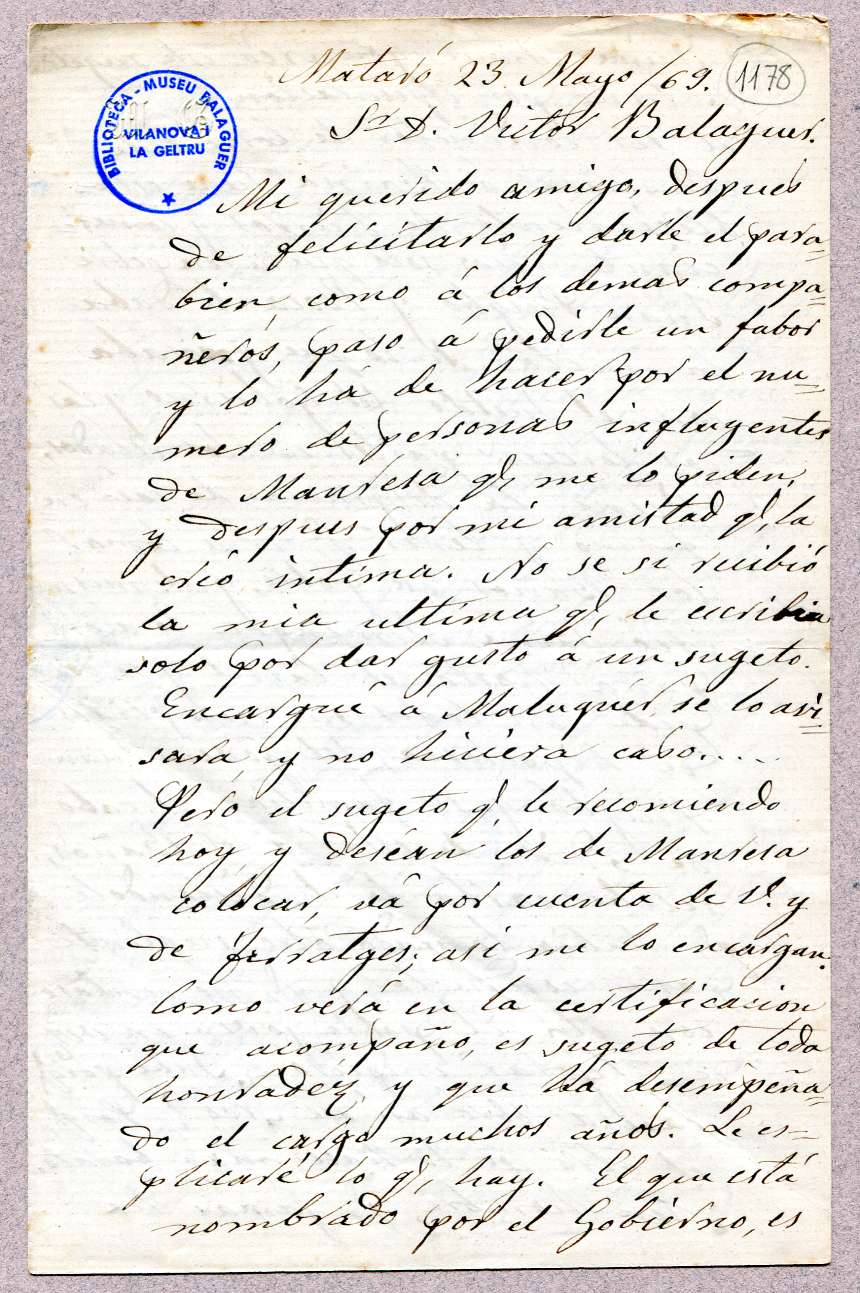 Mataró 23 Mayo /69.
1178
BIBLIOTECA - MUSEU BALAGUER
VILANOVA I
LA GELTRU
Sr D. Victor Balaguer.
Mi querido amigo, despues
de felicitarlo y darle el para=
bien, como á los demas compa=
ñeros, paso á pedirle un fabor
y lo há de hacer por el nu=
mero de personas influyentes
de Manresa q', me lo piden,
y despues por mi amistad q', la
creó intima. No se si recibió
la mia ultima q', le escribia
solo por dar gusto á un sugeto.
Encargué á Maluquér, se lo avi=
sara, y no hiciera caso....
Pero el sugeto q', le recomiendo
hoy, y deséan los de Manresa
colocar, vá por cuenta de V. y
de ferratges; asi me lo encargan.
Como verá en la certificacion
que acompaño, es sugeto de toda
honradéz, y que há desempeña=
do el cargo muchos años. Le es=
plicaré lo q', hay. El que está
nombrado por el Gobierno, es